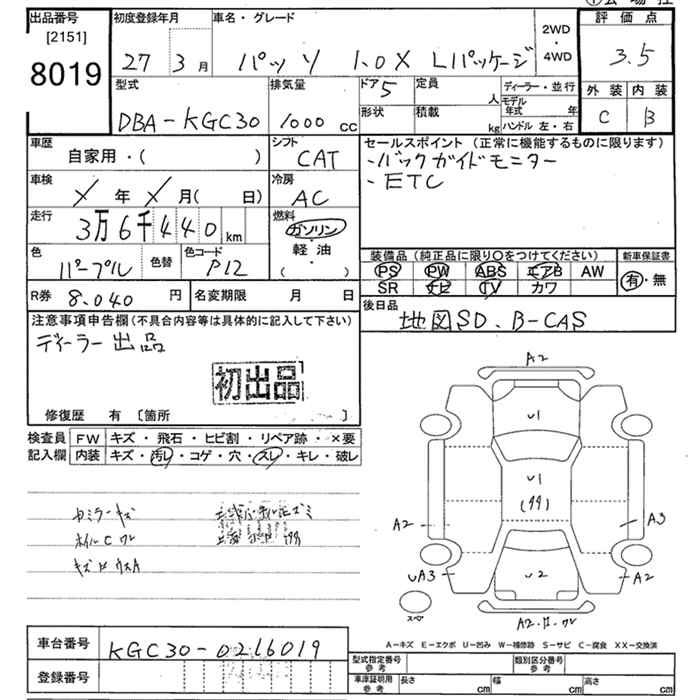 出品番号
[2151]
8019
初度登録年月
27 3月
車名・グレード
パッソ 1.0X Lパッケージ
2WD
・
4WD
評価点
3.5
外装 内装
C B
型式
DBA-KGC30
排気量
1000 cc
ドア 5
形状
定員
人
積載
kg
ディーラー・並行
モデル
年式 年
ハンドル 左・右
車歴
自家用・( )
シフト
CAT
車検
年 月( 日)
冷房
AC
走行
3万6千440 km
燃料
ガソリン
・
軽油
( )
色
パープル
色替
色コード
P12
R券 8.040 円
名変期限 月 日
セールスポイント(正常に機能するものに限ります)
・バックガイドモニター
・ETC
装備品(純正品に限り○をつけてください)
PS PW ABS エアB AW
SR ナビ TV カワ
新車保証書
有・無
後日品
地図SD、B-CAS
注意事項申告欄(不具合内容等は具体的に記入して下さい)
ディーラー出品
初出品
修復歴 有 [箇所 ]
検査員
記入欄
FW キズ・飛石・ヒビ割・リペア跡・×要
内装 キズ・汚レ・コゲ・穴・スレ・キレ・破レ
A2
U1
U1
A2
A3
UA3
U2
A2
スペア
A-キズ E-エクボ U-凹み W-補修跡 S-サビ C-腐食 XX-交換済
車台番号 KGC30-0216019
登録番号
型式指定番号
参考
類別区分番号
参考
車庫証明用
参考
長さ cm 幅 cm 高さ cm